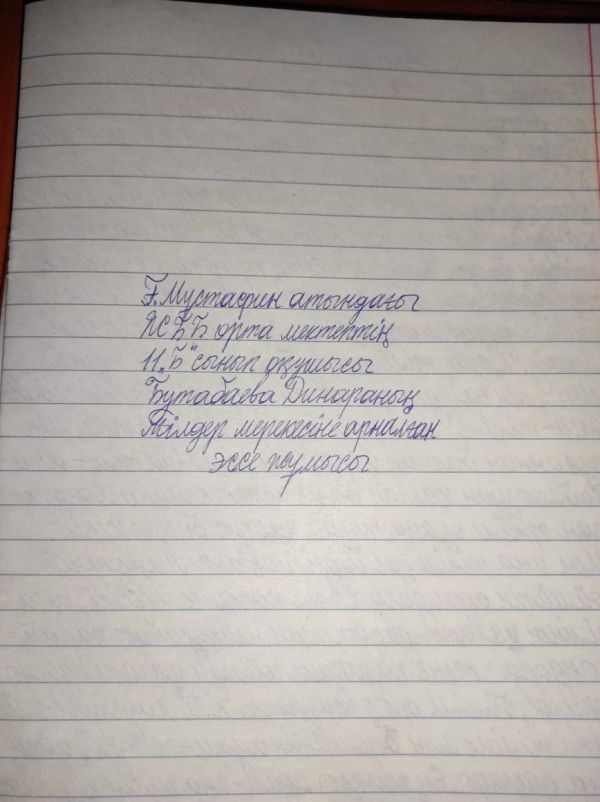 Ғ.Мустафин атындағы
ЖББ орта мектептің
11 „Б" сынып оқушысы
Бутабаева Динараның
Тілдер мерекесіне арналған
эссе жұмысы